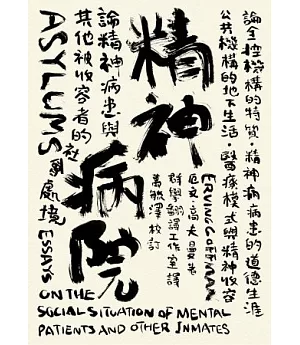 論全控機構的特質・精神病病患的道德生涯
公共機構的地下生活・醫療模式與精神收容
ERVING GOFFMAN
厄文・高夫曼 著
群學翻譯工作室 譯
萬毓澤 校訂
精神
病院
論精神病患與
其他被收容者的社會處境
ASYLUMS
ESSAYS
ON THE
SOCIAL SITUATION OF MENTAL
PATIENTS AND OTHER INMATES